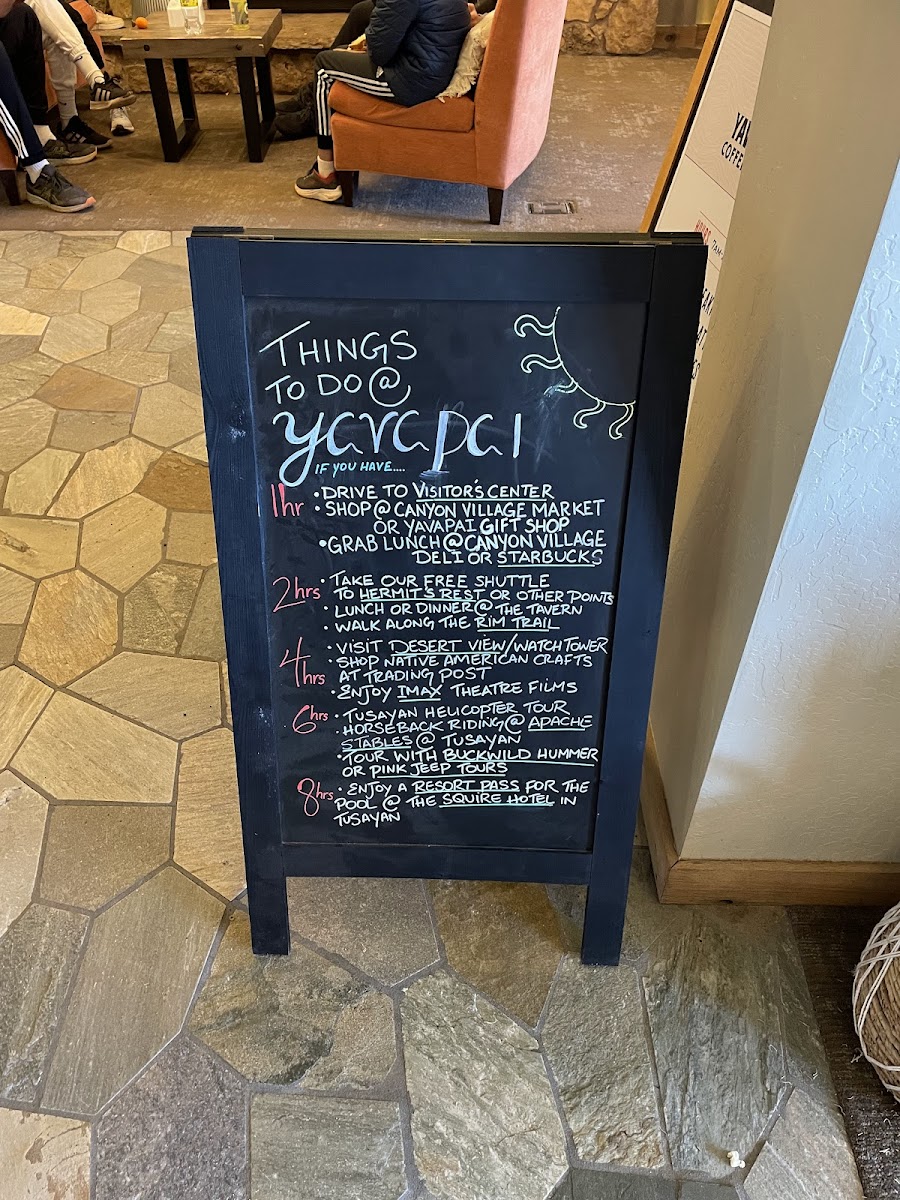 THINGS
TO DO @
yavapai
IF YOU HAVE....
1hr • DRIVE TO VISITOR'S CENTER
• SHOP @ CANYON VILLAGE MARKET
OR YAVAPAI GIFT SHOP
• GRAB LUNCH @ CANYON VILLAGE
DELI OR STARBUCKS
2hrs • TAKE OUR FREE SHUTTLE
TO HERMIT'S REST OR OTHER POINTS
• LUNCH OR DINNER @ THE TAVERN
• WALK ALONG THE RIM TRAIL
4hrs • VISIT DESERT VIEW/WATCHTOWER
• SHOP NATIVE AMERICAN CRAFTS
AT TRADING POST
• ENJOY IMAX THEATRE FILMS
6hrs • TUSAYAN HELICOPTER TOUR
• HORSEBACK RIDING @ APACHE
STABLES @ TUSAYAN
• TOUR WITH BUCKWILD HUMMER
OR PINK JEEP TOURS
8hrs • ENJOY A RESORT PASS FOR THE
POOL @ THE SQUIRE HOTEL IN
TUSAYAN